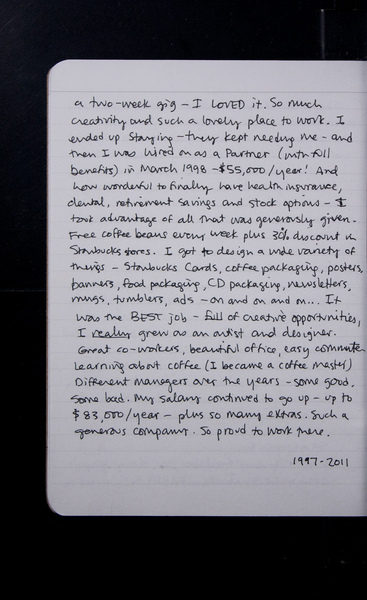 a two-week gig – I LOVED it. So much
creativity and such a lovely place to work. I
ended up staying – they kept needing me – and
then I was hired on as a Partner (with full
benefits) in March 1998 – $55,000/year! And
how wonderful to finally have health insurance,
dental, retirement savings and stock options – I
took advantage of all that was generously given.
Free coffee beans every week plus 30% discount in
Starbucks stores. I got to design a wide variety of
things – Starbucks Cards, coffee packaging, posters,
banners, food packaging, CD packaging, newsletters,
mugs, tumblers, ads – on and on and on... It
was the BEST job – full of creative opportunities,
I really grew as an artist and designer.
Great co-workers, beautiful office, easy commute
learning about coffee (I became a coffee master)
Different managers over the years – some good,
some bad. My salary continued to go up – up to
$83,000/year – plus so many extras. Such a
generous company. So proud to work there.
1997-2011